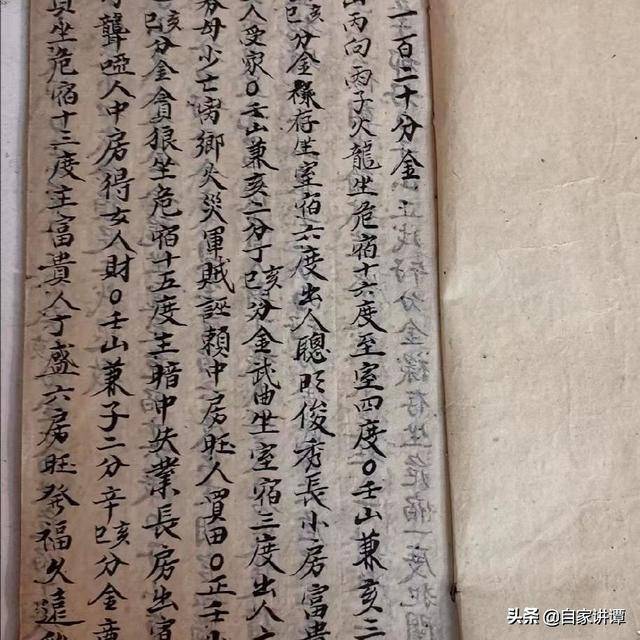 一百二十分金
山丙向丙子火龍坐危宿十六度至室四度〇壬山兼亥三
巳亥分金祿存坐室宿六度出人聰明俊秀長小房富貴
人受〇壬山兼亥二分丁巳亥分金武曲坐室宿三度出人
母少亡离鄉失災軍賊誣賴中房旺人買田〇正壬山
巳亥分金貪狼坐危宿十五度主暗中失業長房出
聾啞人中房得女人財〇壬山兼子二分辛巳亥分金
貞坐危宿十二度主富貴人丁盛六房旺發福久遠
头条 @自家讲谭